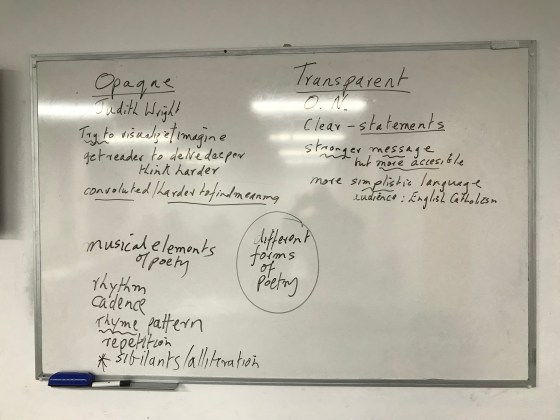 Opaque
Judith Wright
Try to visualize/imagine
get reader to delve deeper
think harder
convoluted/harder to find meaning
Transparent
O. N.
Clear - statements
stronger message
but more accesible
more simplistic language
audience: English Catholism
musical elements
of poetry
rhythm
cadence
rhyme pattern
repetition
* sibilants/alliteration
different
forms
of
poetry